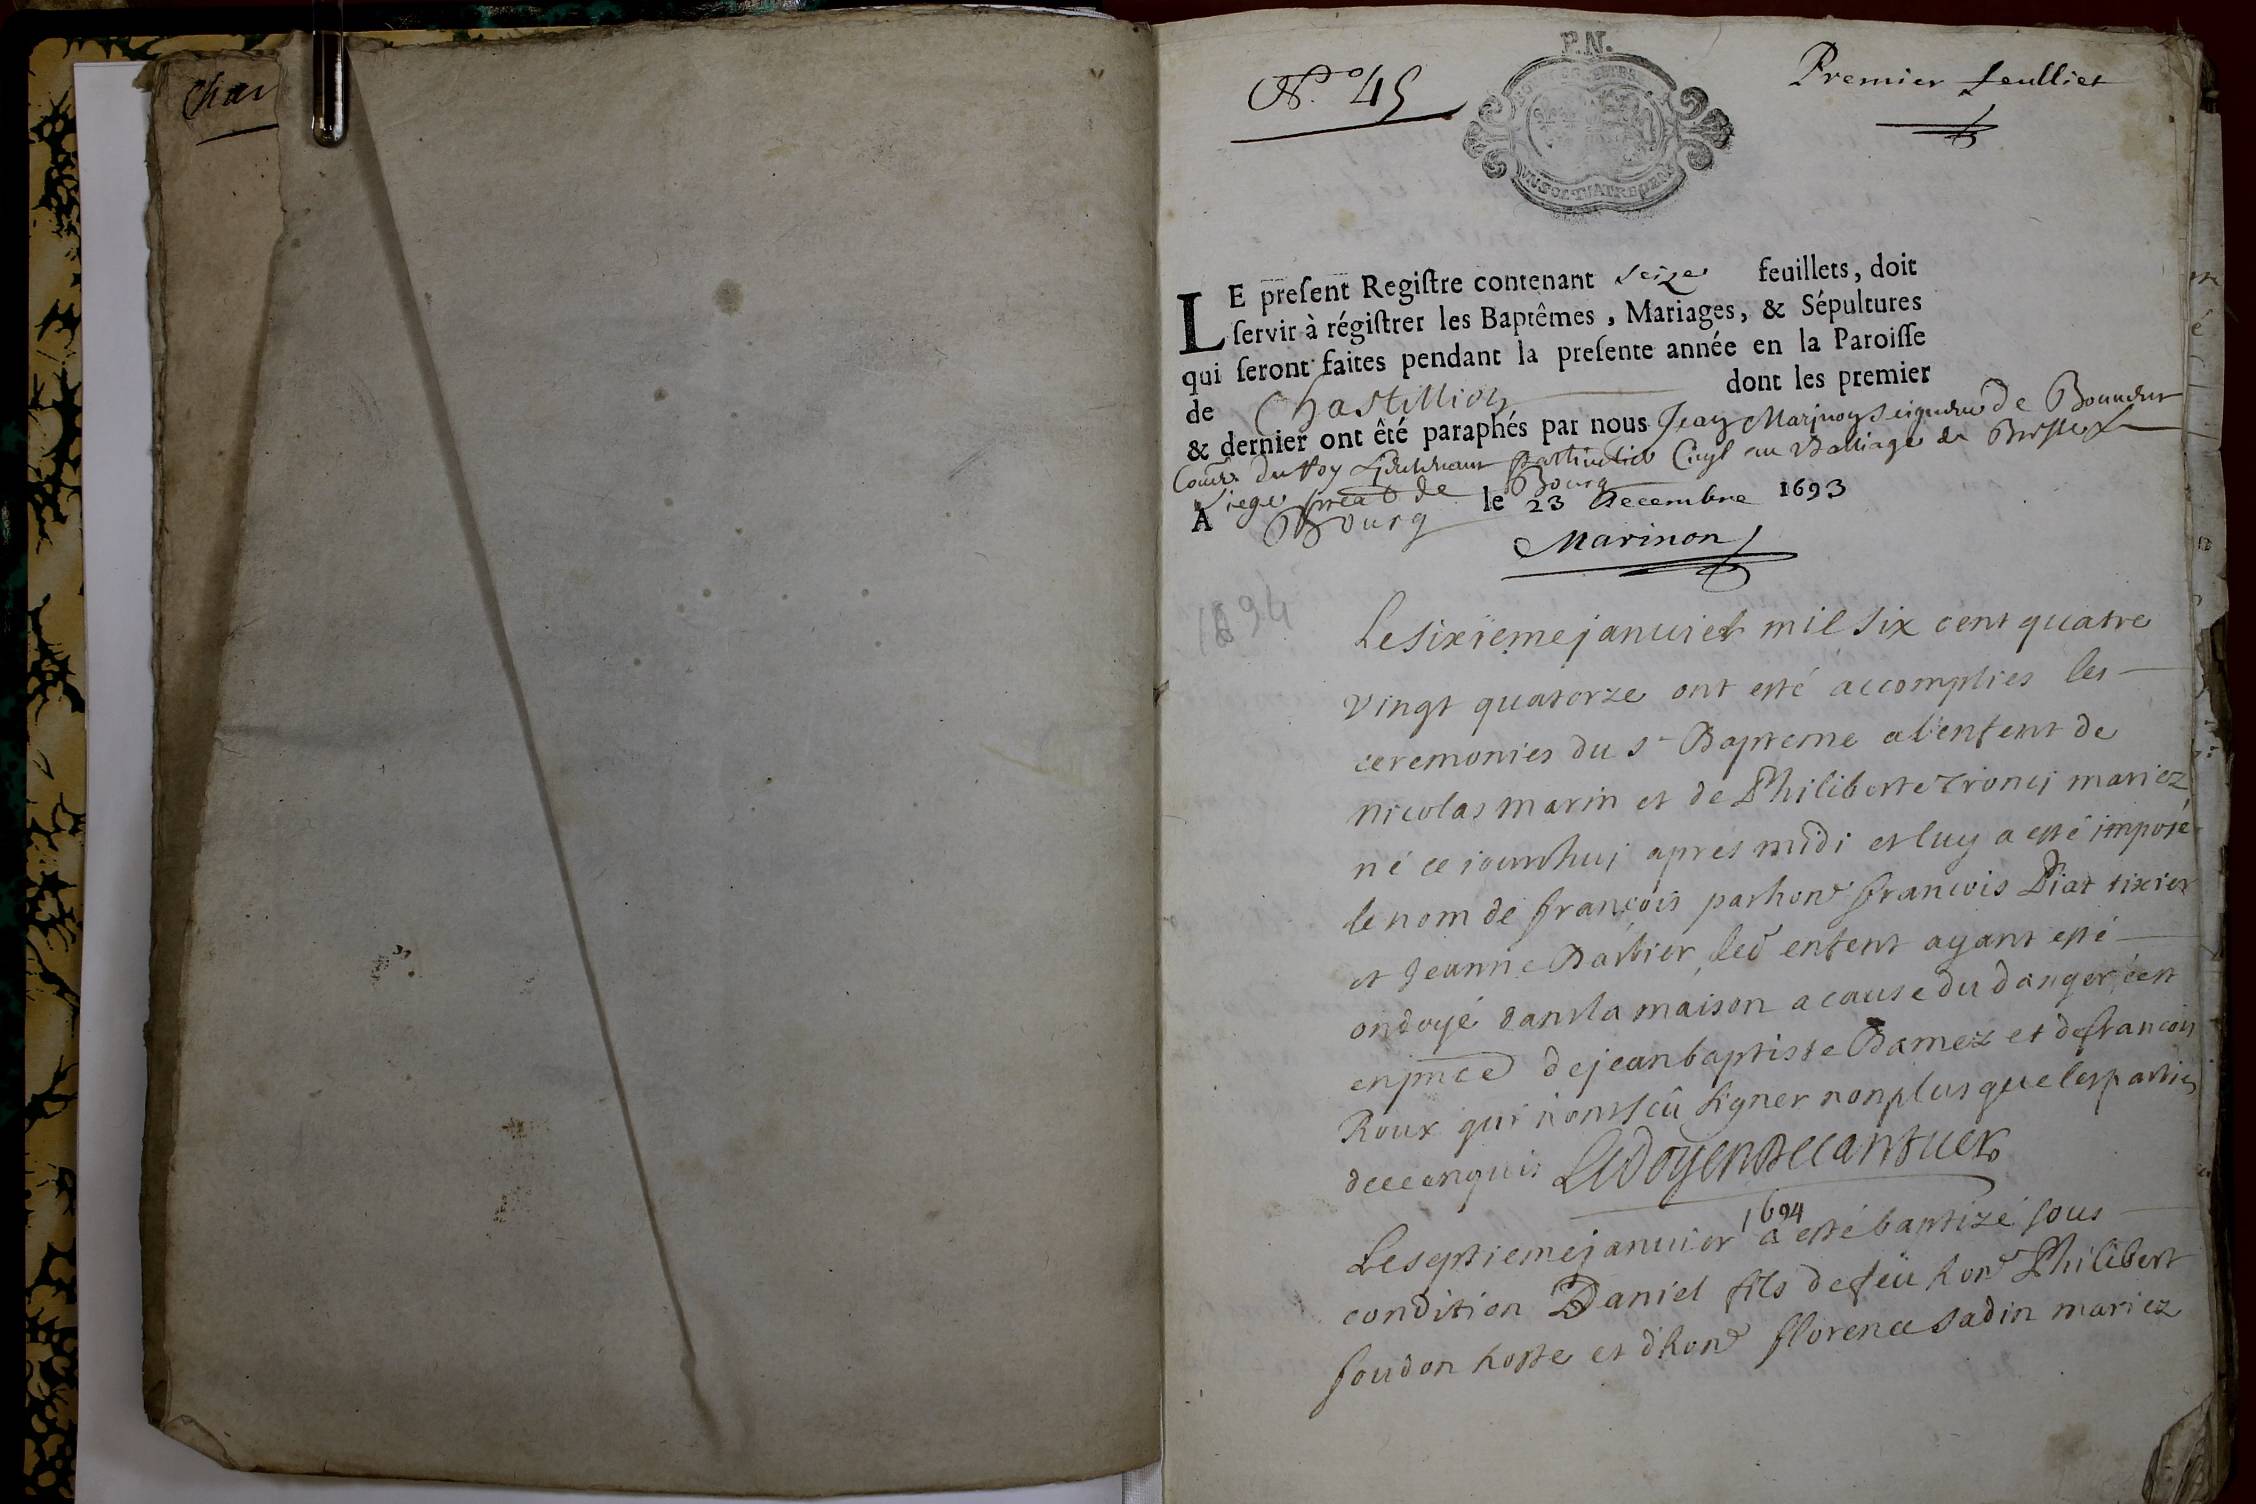 Char
N.º 45
P.N.
Premier feulliet
VN SOL QVATRE DEN
LE preſent Regiſtre contenant seize feuillets, doit
ſervir à régiſtrer les Baptêmes, Mariages, & Sépultures
qui ſeront faites pendant la preſente année en la Paroiſſe
de Chastillion dont les premier
& dernier ont êté paraphés par nous Jean Marinon Seigneur de
Du Roy Lieutenant Particulier Civyl au Balliage de
Siege de Bourg
A Bourg le 23 Decembre 1693
Marinon
1694
Le sixieme januier mil six cent quatre
vingt quatorze ont esté accomplies les
ceremonies du st Bapteme a l'enfent de
nicolas marin et de Philiberte Tronci mariez
né ce jourdhuj apres midi et luy a esté imposé
le nom de françois par hone francois Piat tixier
et Jeanne Barbier, led enfent ayant esté
ondoyé dans la maison a cause du danger, c'est
en pnce de jean baptiste Damez et de francois
Roux qui n'ont sçû signer non plus que les parties
de ce enquis Le doyen Decantuer
Le septieme januier 1694 a esté baptizé sous
condition Daniel fils de feü hone Philibert
soudon hoste et d'hone florence sadin mariez